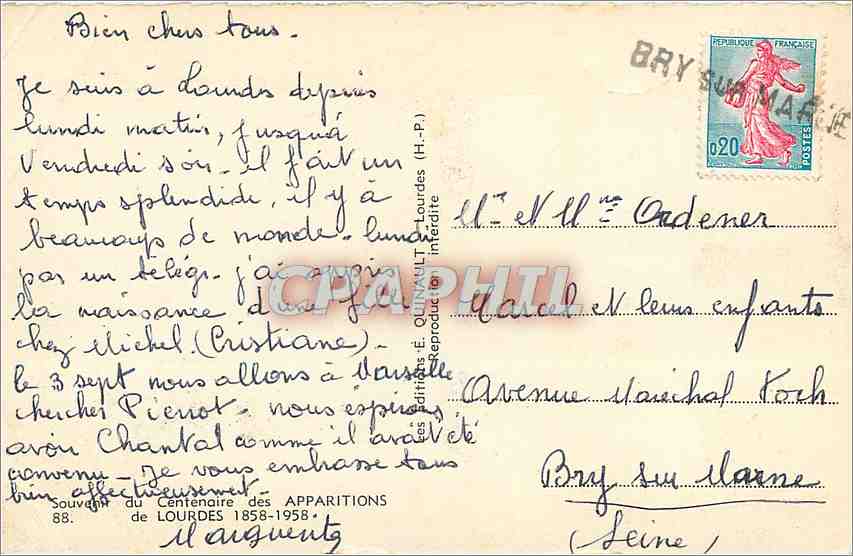 Bien chers tous.
Je suis à Lourdes depuis
lundi matin, jusqu'à
Vendredi soir. il fait un
temps splendide, il y à
beaucoup de monde. lundi
par un télégr. j'ai appris
la naissance d'une fille
chez Michel. (Cristiane).
le 3 sept nous allons à Marseille
chercher Pierrot. nous espérons
avoir Chantal comme il avait été
convenu. Je vous embrasse tous
bien affectueusement.
Marguerite
Souvenir du Centenaire des APPARITIONS
88. de LOURDES 1858-1958
Les Editions E. QUINAULT Lourdes (H.-P.)
Reproduction interdite
CPAPHIL
BRY SUR MARNE
REPUBLIQUE FRANÇAISE
0,20
POSTES
Mr et Mme Ordener
Marcel et leurs enfants
Avenue Maréchal Foch
Bry sur Marne
(Seine)